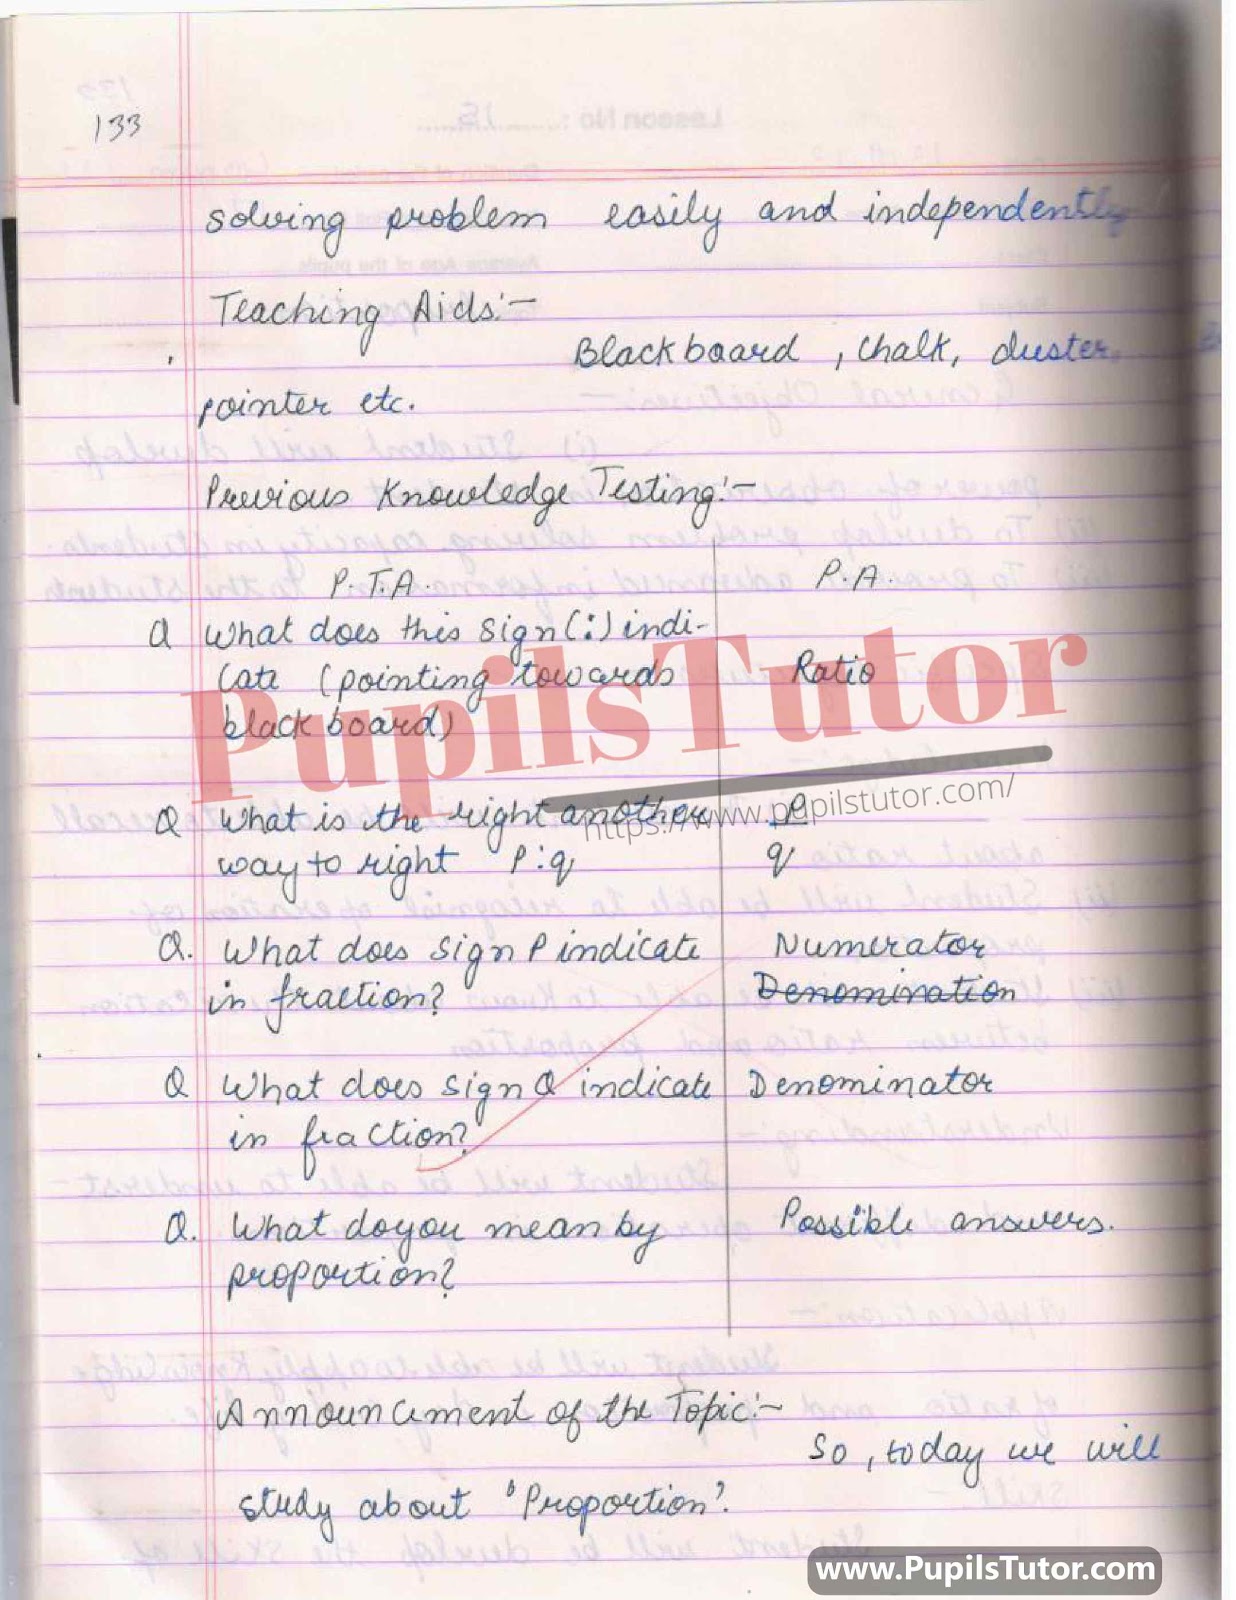 133
solving problem easily and independently
Teaching Aids:-
Blackboard, chalk, duster,
pointer etc.
Previous Knowledge Testing:-
P.T.A. P.A.
Q What does this sign (:) indi-
cate (pointing towards Ratio
black board)
Q What is the right another P
way to right P:q q
Q. What does sign P indicate Numerator
in fraction? Denomination
Q What does sign Q indicate Denominator
in fraction?
Q. What do you mean by Possible answers.
proportion?
Announcement of the Topic:-
So, today we will
study about 'Proportion'.
PupilsTutor
https://www.pupilstutor.com/
www.PupilsTutor.com